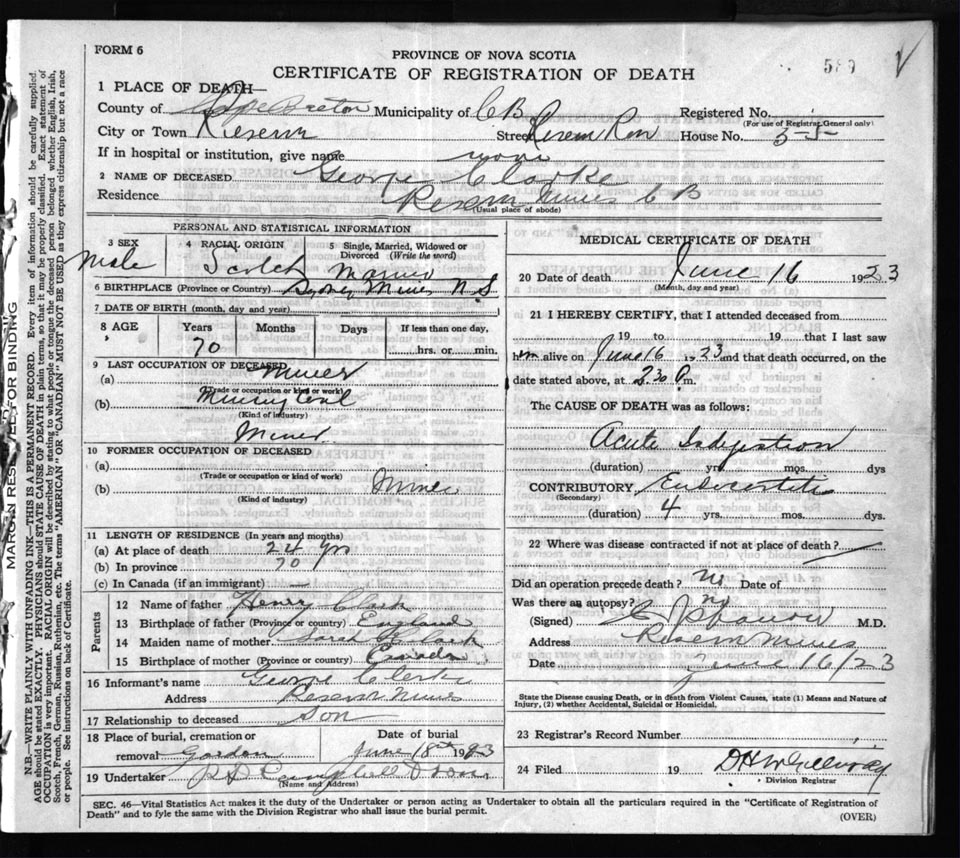 FORM 6
PROVINCE OF NOVA SCOTIA
CERTIFICATE OF REGISTRATION OF DEATH
589
1 PLACE OF DEATH—
County of Cape Breton Municipality of C B Registered No.
(For use of Registrar General only)
City or Town Street House No. 55
If in hospital or institution, give name none
2 NAME OF DECEASED George Clarke
Residence Mines C B
(Usual place of abode)
PERSONAL AND STATISTICAL INFORMATION
3 SEX 4 RACIAL ORIGIN 5 Single, Married, Widowed or Divorced (Write the word)
Male Scotch
6 BIRTHPLACE (Province or Country) Sydney Mines N.S
7 DATE OF BIRTH (month, day and year)
8 AGE Years Months Days If less than one day,
70 hrs. or min.
9 LAST OCCUPATION OF DECEASED
(a) Miner
(Trade or occupation or kind or work)
(b) Mining Coal
(Kind of industry)
Miner
10 FORMER OCCUPATION OF DECEASED
(a)
(Trade or occupation or kind of work)
(b) Miner
(Kind of industry)
11 LENGTH OF RESIDENCE (In years and months)
(a) At place of death 24 yrs
(b) In province 70
(c) In Canada (if an immigrant) —
Parents
12 Name of father Henry Clark
13 Birthplace of father (Province or country) England
14 Maiden name of mother Sarah Clark
15 Birthplace of mother (Province or country) Canada
16 Informant's name George Clarke
Address Mines
17 Relationship to deceased Son
18 Place of burial, cremation or removal Gordon
Date of burial June 18th 1923
19 Undertaker Campbell
(Name and Address)
MEDICAL CERTIFICATE OF DEATH
20 Date of Death June 16 1923
(Month, day and year)
21 I HEREBY CERTIFY, that I attended deceased from
19 to 19 that I last saw
him alive on June 16 1923 and that death occurred, on the
date stated above, at 2.30 P.m.
The CAUSE OF DEATH was as follows:
Acute Indigestion
(duration) yrs. mos. dys
CONTRIBUTORY Endocarditis
(Secondary)
(duration) 4 yrs. mos. dys.
22 Where was disease contracted if not at place of death?
Did an operation precede death? no Date of
Was there an autopsy? no
(Signed) M.D.
Address Mines
Date June 16/23
State the Disease causing Death, or in death from Violent Causes, state (1) Means and Nature of Injury, (2) whether Accidental, Suicidal or Homicidal.
23 Registrar's Record Number
24 Filed 19
Division Registrar
SEC. 46—Vital Statistics Act makes it the duty of the Undertaker or person acting as Undertaker to obtain all the particulars required in the "Certificate of Registration of
Death" and to fyle the same with the Division Registrar who shall issue the burial permit.
(OVER)
MARGIN RESERVED FOR BINDING
N.B.—WRITE PLAINLY WITH UNFADING INK—THIS IS A PERMANENT RECORD. Every item of information should be carefully supplied.
AGE should be stated EXACTLY. PHYSICIANS should STATE CAUSE OF DEATH in plain terms, so that it may be properly classified. Exact statement of
OCCUPATION is very important. RACIAL ORIGIN will be described by stating to what people or tongue the deceased person belonged whether English, Irish,
Scotch, French, German, Russian, Ruthenian, etc. The terms "AMERICAN" OR "CANADIAN" MUST NOT BE USED as they express citizenship but not a race
or people. See instructions on back of Certificate.